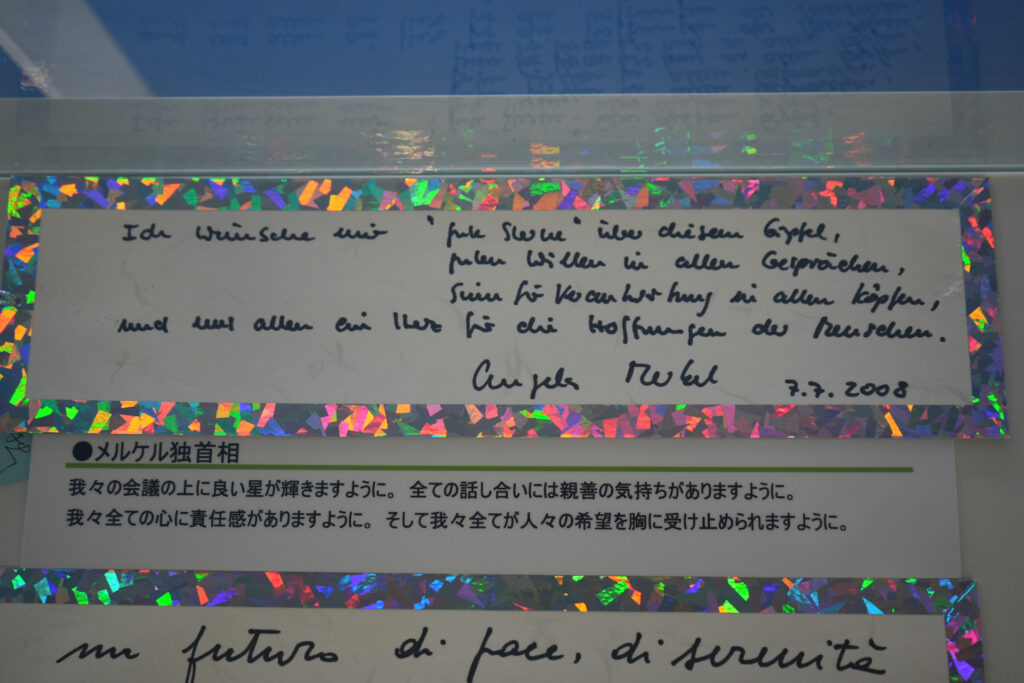 Ich wünsche mir "gute Sterne" über diesem Gipfel,
guten Willen in allen Gesprächen,
Sinn für Verantwortung in allen Köpfen,
und uns allen ein Herz für die Hoffnungen der Menschen.
Angela Merkel 7.7.2008
●メルケル独首相
我々の会議の上に良い星が輝きますように。 全ての話し合いには親善の気持ちがありますように。
我々全ての心に責任感がありますように。 そして我々全てが人々の希望を胸に受け止められますように。
un futuro di pace, di serenità